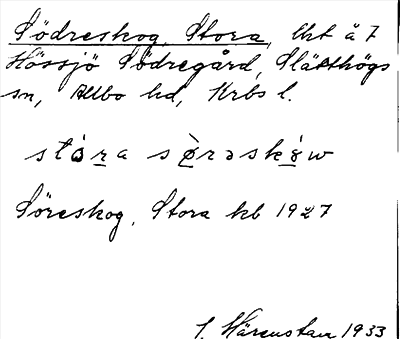 Södreskog, Stora, lht å 7
Hössjö Södregård, Slätthögs
sn, Allbo hd, Krbs l.
stóra sø̀rəskó̀w
Söreskog, Stora kb 1927
1933